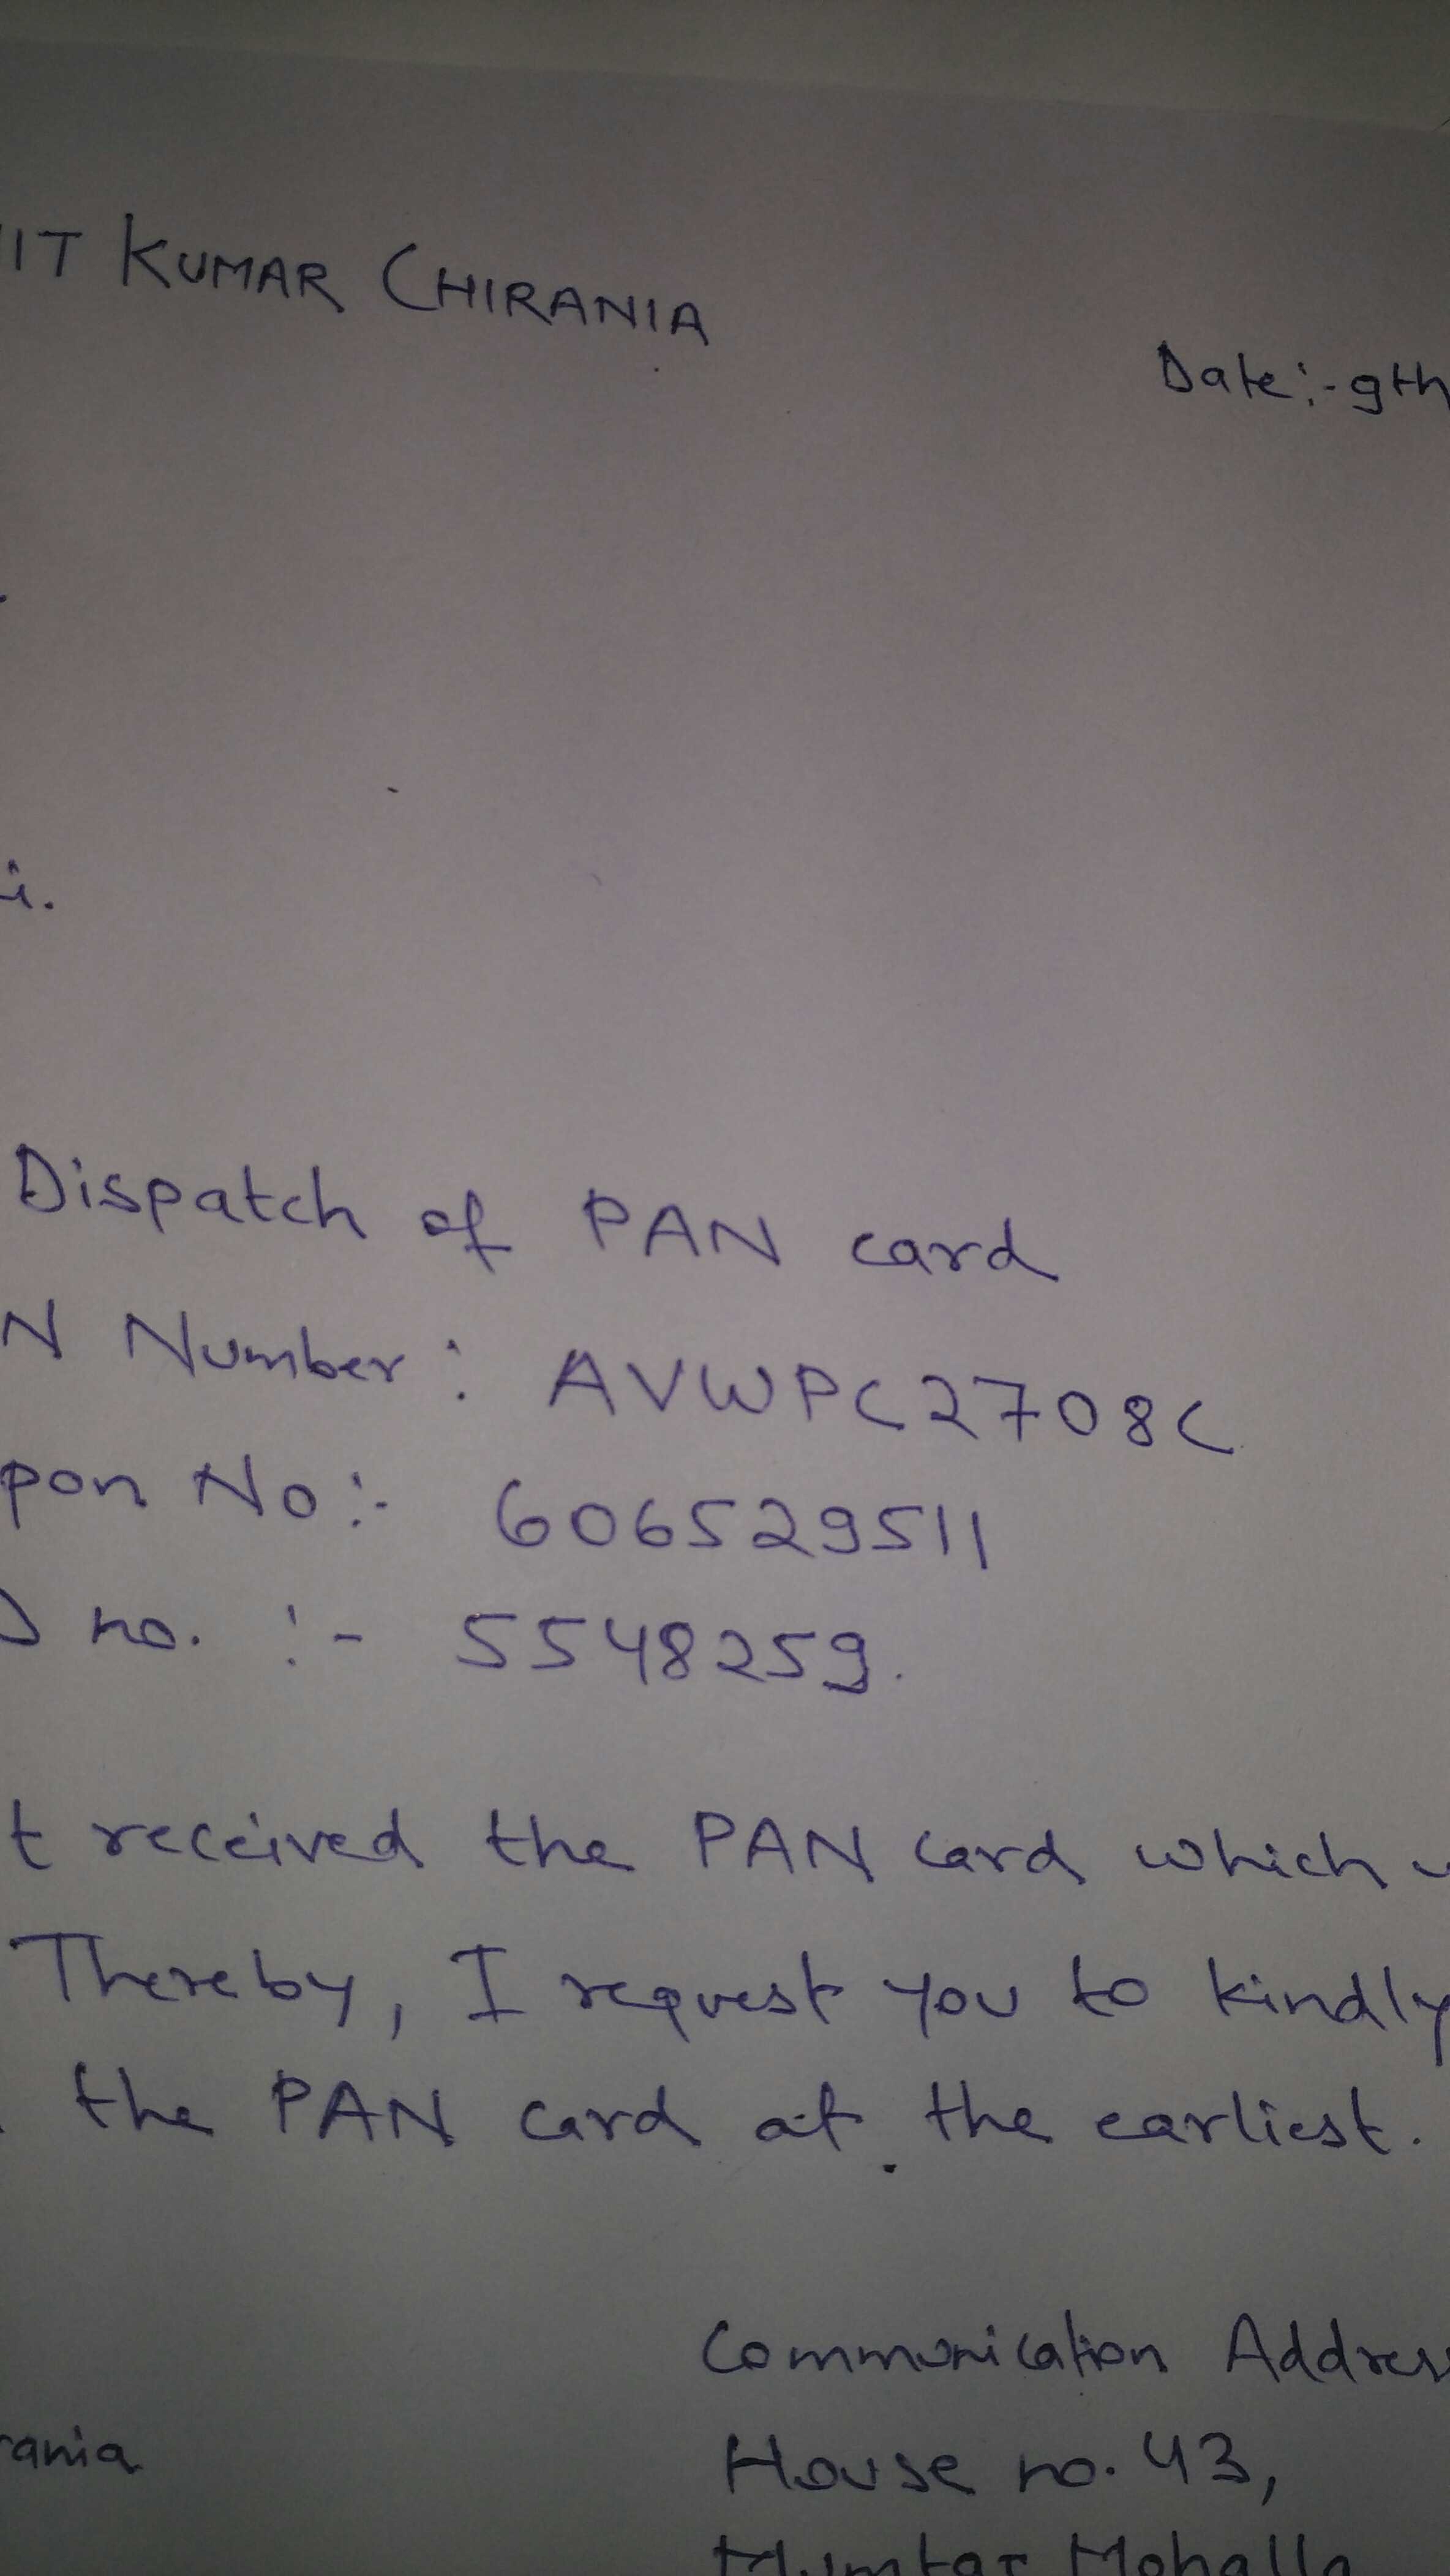 IT KUMAR CHIRANIA
Date:-9th
i.
Dispatch of PAN card
N Number: AVWPC2708C
pon No:- 606529511
no. :- 5548259.
t received the PAN card which
Thereby, I request you to kindly
the PAN card at the earliest.
Communication Address
rania
House no. 43,
Mumtaz Mohalla